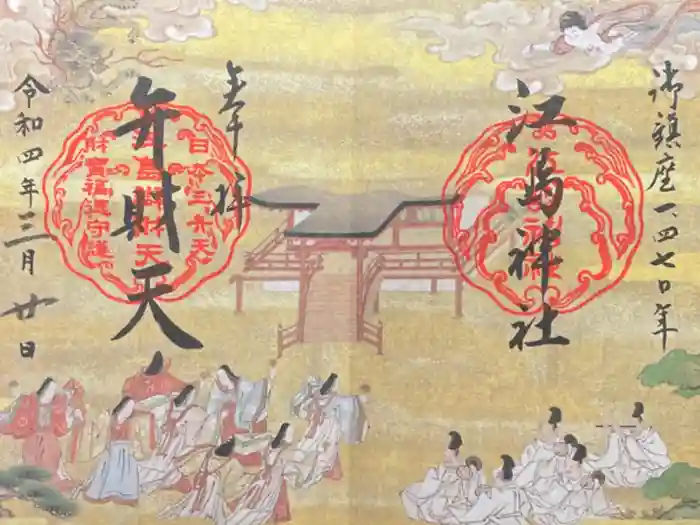 御鎮座一四七〇年
江島神社
奉拝
弁財天
日本三弁天
江島弁財天
財宝福徳守護
令和四年三月廿日